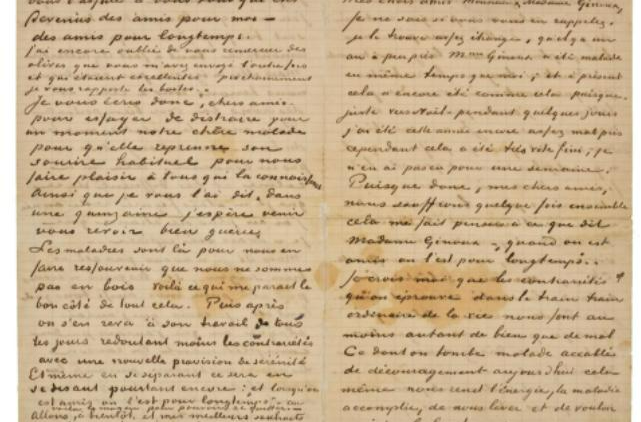 devenus des amis pour moi –
des amis pour longtemps.
j'ai encore oublié de vous remercier des
olives que vous m'avez envoyé l'autre fois
et qui étaient excellentes prochainement
je vous rapporte les boites.–
Je vous écris donc, chers amis
pour essayer de distraire pour
un moment notre chère malade
pour qu'elle reprenne son
sourire habituel pour nous
faire plaisir à tous qui la connaissons
Ainsi que je vous l'ai dit, dans
une quinzaine j'espère venir
vous revoir bien guéries
Les maladies sont là pour nous en
faire ressouvenir que nous ne sommes
pas en bois voilà ce qui me parait le
bon côté de tout cela. Puis après
on s'en reva à son travail de tous
les jours redoutant moins les contrariétés
avec une nouvelle provision de sérénité
Et même en se séparant ce sera en
se disant pourtant encore: "et lorsqu'on
est amis on l'est pour longtemps" – car
voila le moyen pour pouvoir se quitter –
Allons, à bientôt, et mes meilleurs souhaits
Mes chers amis Monsieur & Madame Ginoux,
Je ne sais si vous vous en rappelez,
je le trouve assez étrange, qu'il y a un
an à peu près Mme Ginoux a été malade
en même temps que moi; et à présent
cela a encore été comme cela puisque
juste vers Noël – pendant quelques jours
j'ai été cette année encore assez mal pris
cependant cela a été très vite fini; je
n'en ai pas eu pour une semaine.
Puisque donc, mes chers amis,
nous souffrons quelque fois ensemble
cela me fait penser à ce que dit
Madame Ginoux – "quand on est
amis on l'est pour longtemps."–
Je crois moi que les contrariétés
qu'on éprouve dans le train train
ordinaire de la vie nous font au
moins autant de bien que de mal
Ce dont on tombe malade accablé
de découragement aujourd'hui cela
même nous rend l'énergie, la maladie
accomplie, de nous lever et de vouloir